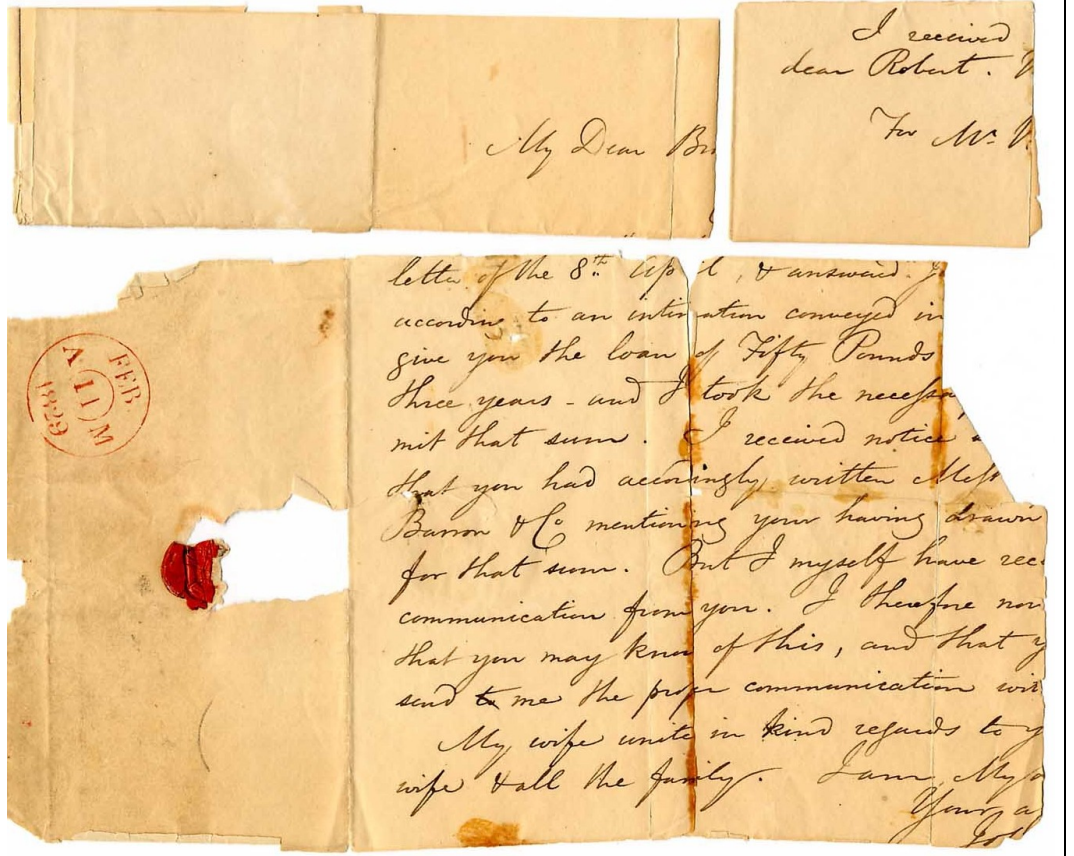 My Dear
I received
dear Robert.
For Mr.
letter of the 8th Ap l, & answered
according to an intimation conveyed in
give you the loan of Fifty Pounds
three years - and I took the necessa
mit that sum. I received notice
that you had accordingly written Mess
Barron & Co mentioning your having drawn
for that sum. But I myself have rec
communication from you. I therefore now
that you may know of this, and that y
send to me the proper communication
My wife unites in kind regards to y
wife & all the family. I am, My
Your a
FEB.
A 11 M
1829